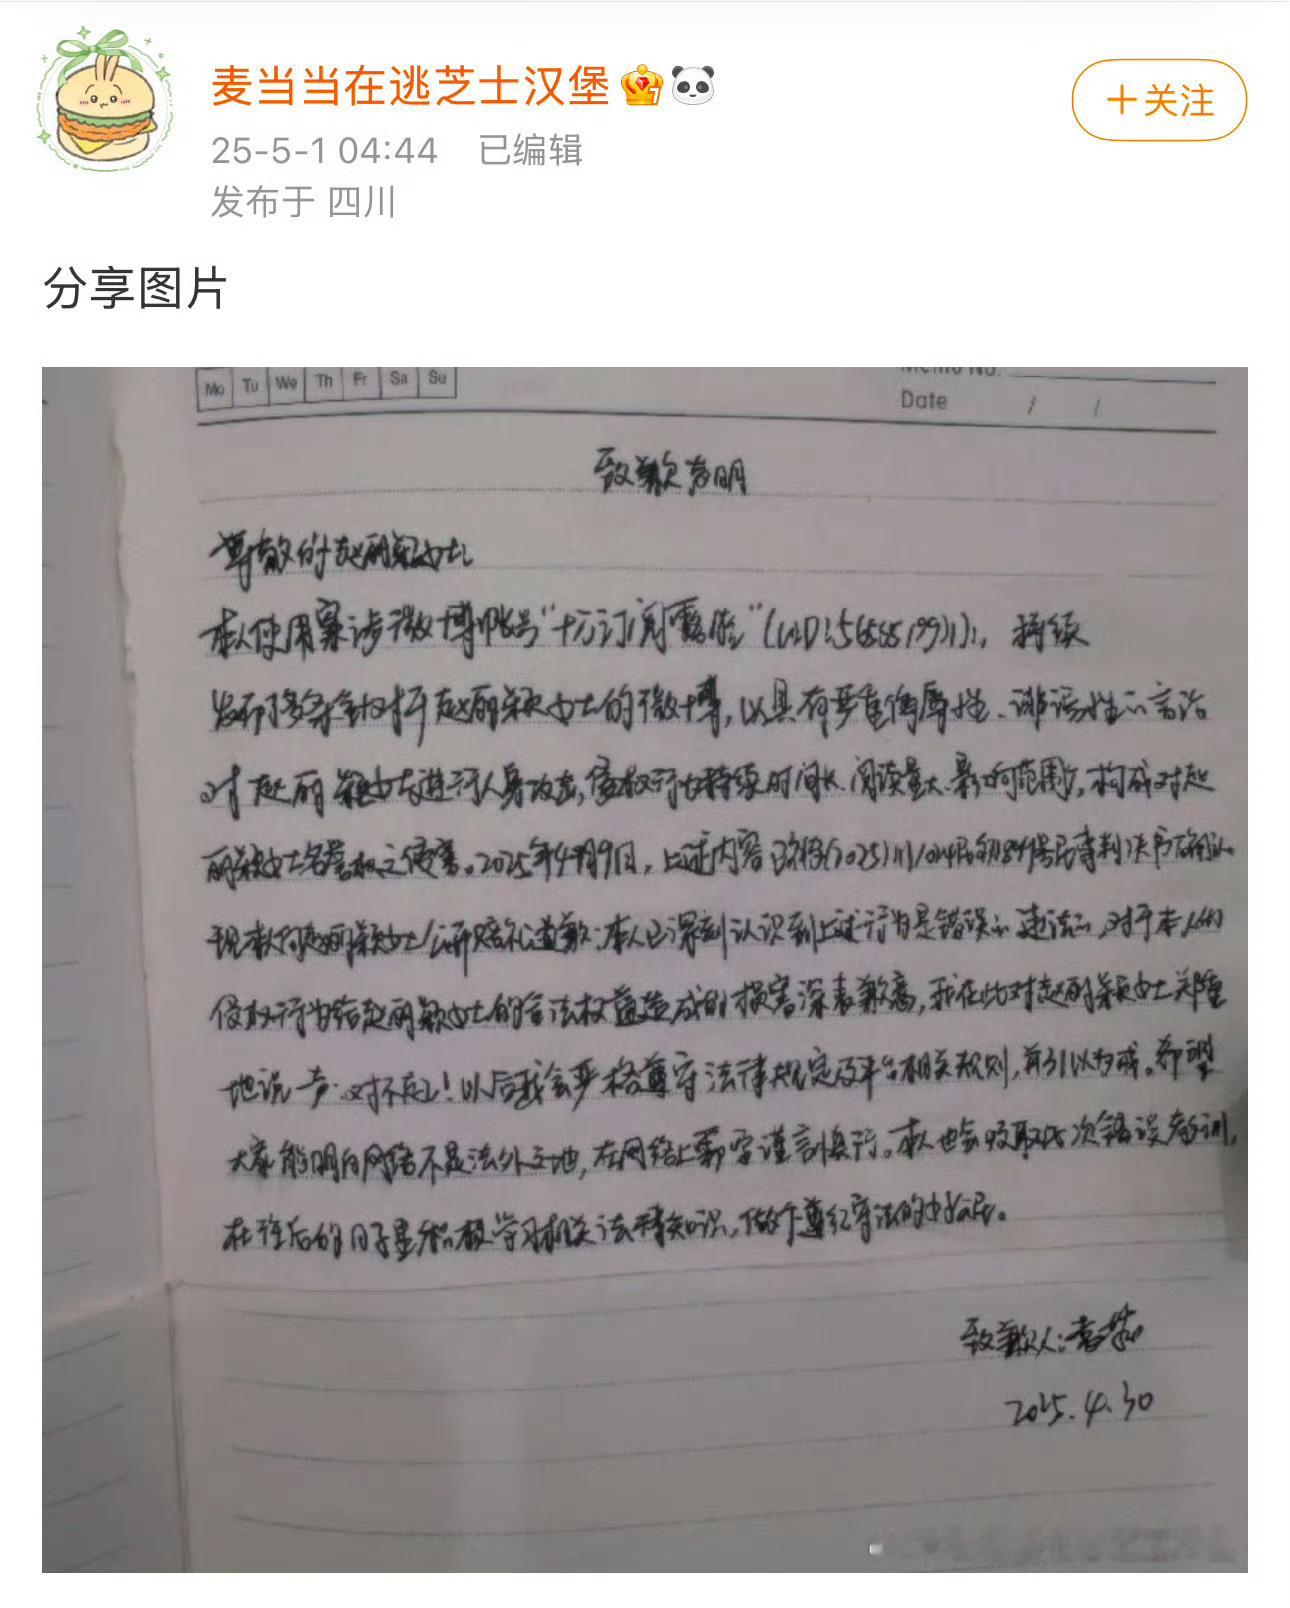 麦当当在逃芝士汉堡
+关注
25-5-1 04:44 已编辑
发布于 四川
分享图片
Mo Tu We Th Fr Sa Su
Memo No.
Date / /
致歉声明
尊敬的赵丽颖女士
本人使用案涉微博账号“十元订阅露脸”(UID:5658519931):, 持续
发布了多条针对赵丽颖女士的微博,以具有严重侮辱性、诽谤性的言论
对赵丽颖女士进行人身攻击,侵权行为持续时间长、阅读量大、影响范围广,构成对赵
丽颖女士名誉权之侵害。2025年4月9日,上述内容已经(2025)川1024民初84号民事判决书确认。
现本人向赵丽颖女士公开赔礼道歉:本人已深刻认识到上述行为是错误的、违法的,对于本人的
侵权行为给赵丽颖女士的合法权益造成的损害深表歉意,我在此对赵丽颖女士郑重
地说一声:对不起!以后我会严格遵守法律规定及平台相关规则,并引以为戒。希望
大家能明白网络不是法外之地,在网络上要守谨言慎行。本人也会吸取此次错误教训,
在往后的日子里积极学习相关法律知识,做个遵纪守法的好公民。
致歉人:
2025.4.30